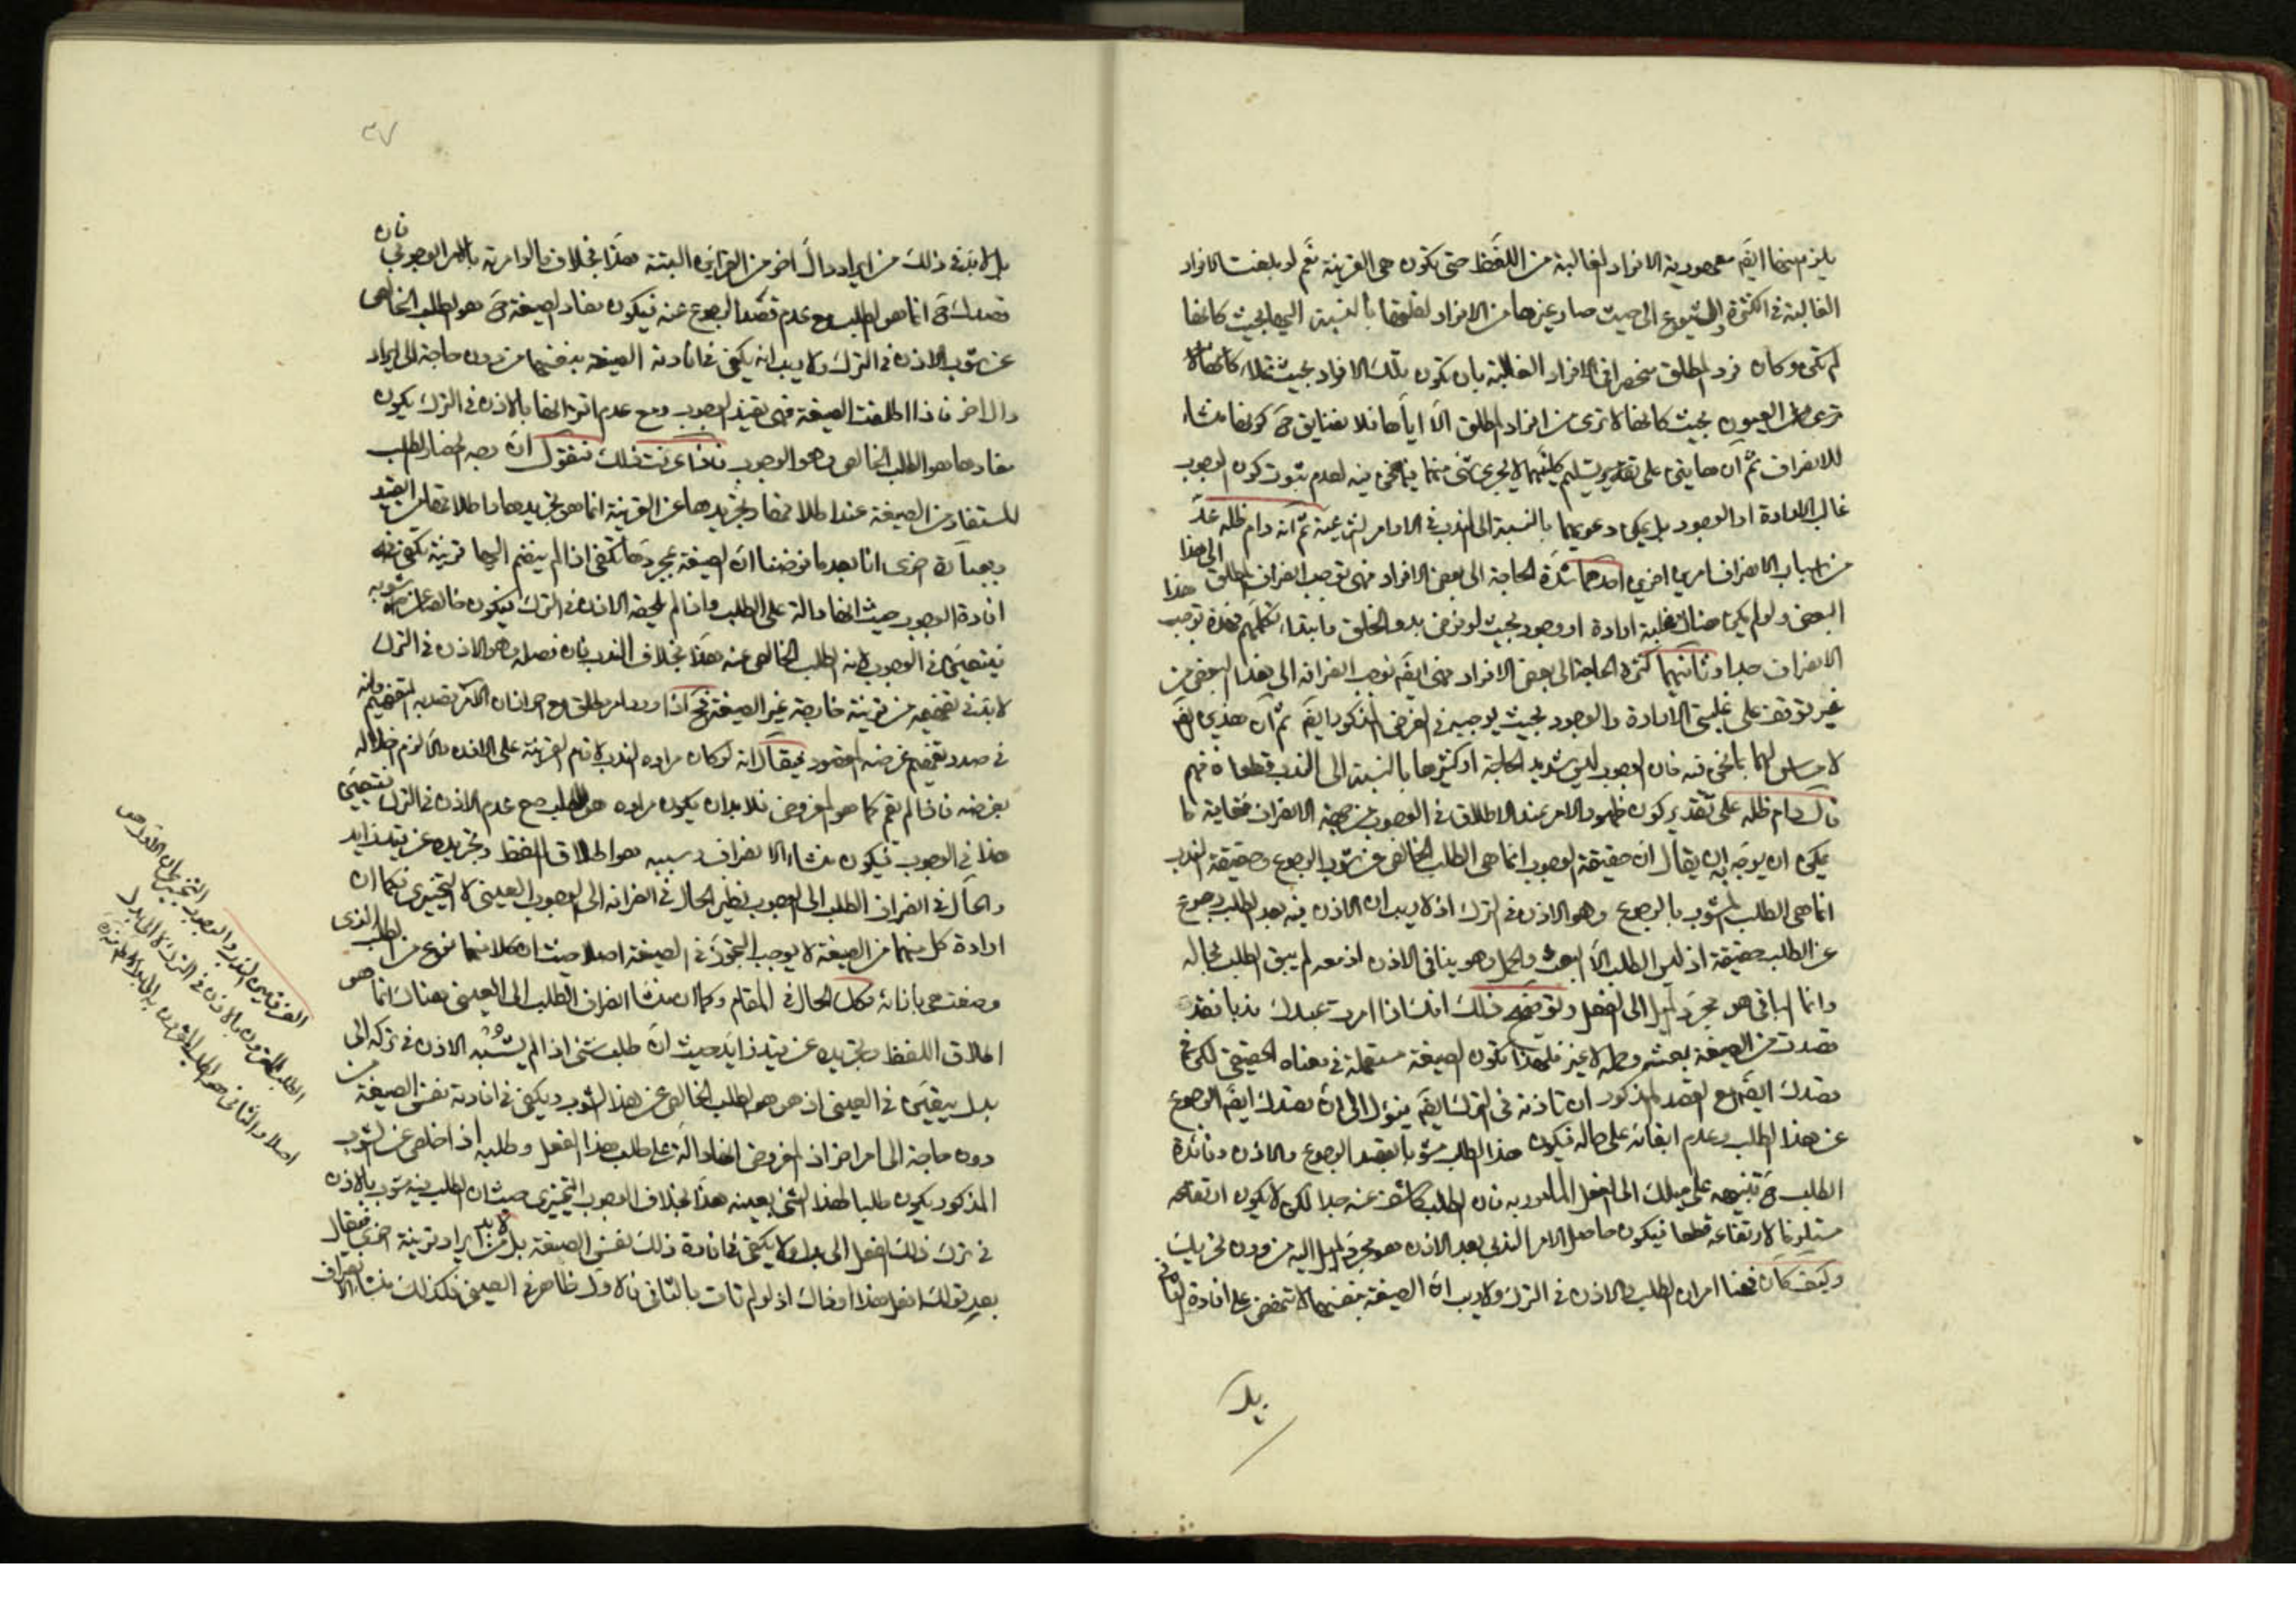 يلزم منهما ايضَ معهودية الافراد الغالبة من اللفظ حتى تكون هى القرينة نعم لو بلغت الافراد
الغالبة فى الكثرة والشيوع الى حيث صار غيرها من الافراد لقلتها بالنسبة اليها بحيث كانها
لم تكن وكان فرد المطلق منحصرا فى الافراد الغالبة بان تكون تلك الافراد بحيث
ترى العيون بحيث كانها لا ترى من افراد المطلق الّا اياها فلا نضايق حَ كونها منشاء
للانصراف ثم ان هاتين على تقدير تسليم كليتهما لا يجرى شئ منهما فيما نحن فيه لعدم ثبوت كون الوجوب
غالب الارادة او الوجود بل يمكن دعويهما بالنسبة الى الندب فى الاوامر الشرعية ثم انه دام ظله عدّ
من اسباب الانصراف امرين اخرين احدهما شدّة الحاجة الى بعض الافراد فهى توجب انصراف المطلق الى هذا
البعض ولو لم يكن هناك غلبة ارادة او وجود بحيث لو فرض بدو الخلق وابتداء تكلمهم فهذه توجب هذا
الانصراف جدا وثانيهما كثرة الحاجة الى بعض الافراد فهى ايضَ توجب انصرافه الى هذا البعض من
غير توقف على غلبتى الارادة والوجود بحيث يوجبه فى الفرض المذكور ايضَ ثم ان هذين ايضَ
لا مساس لهما بما نحن فيه فان الوجوب ليس شديد الحاجة او كثيرها بالنسبة الى الندب قطعا فافهم
قال دام ظله على تقدير كون ظهور الامر عند الاطلاق فى الوجوب من جهة الانصراف فغاية ما
يمكن ان يوجّه به ان يقال ان حقيقة الوجوب انما هى الطلب الخالص عن شوب الرجوع وحقيقة الندب
انما هى الطلب المشوب بالرجوع وهو الاذن فى الترك اذ لا ريب ان الاذن فيه بعد الطلب رجوع
عن الطلب حقيقة اذ ليس الطلب الّا البعث والحمل وهو ينافى الاذن اذ معه لم يبق الطلب بحاله
وانما الباقى هو مجرّد الميل الى الفعل وتوضيح ذلك انك اذا امرت عبدك ندبا فقد
قصدت من الصيغة بعثه وحمله لا غير فلهذا تكون الصيغة مستعملة فى معناه الحقيقى لكن فى
قصدك ايضَ مع القصد المذكور ان تاذنه فى الترك ايضَ فيؤل الى انّ قصدك ايضَ الرجوع
عن هذا الطلب وعدم ابقائه على حاله فيكون هذا الطلب مشوبا بقصد الرجوع والاذن وفائدة
الطلب حَ تنبيهه على ميلك الى الفعل المامور به فان الطلب كاشف عنه جدا لكن لا يكون ارتفاعه
مستلزما لارتفاعه قطعا فيكون حاصل الامر الندبى بعد الاذن هو مجرد الميل اليه من دون تحريك
وكيف كان فهنا امران الطلب والاذن فى الترك ولا ريب انّ الصيغة بنفسها لا تنهض على افادة الثانى
بل
٣٧
بل لا بدّ فى ذلك من ايراد دالّ اخر من القرائن البتة هذا بخلاف ما لو امرته بالامر الوجوبى فان
قصدك حَ انما هو الطلب مع عدم قصد الرجوع عنه فيكون مفاد الصيغة حَ هو الطلب الخالص
عن شوب الاذن فى الترك ولا ريب انه يكفى فى افادته الصيغة بنفسها من دون حاجة الى ايراد
دال اخر فاذا اطلقت الصيغة فهى تفيد الوجوب ومع عدم اقترانها بالاذن فى الترك يكون
مفادها هو الطلب الخالص وهو الوجوب فاذا عرفت ذلك فنقول انّ وجه انصار الطلب
المستفاد من الصيغة عند اطلاقها وتجريدها عن القرينة انما هو تجريدها واطلاقها من القيد
وبعبارة اخرى انا بعد ما فرضنا ان الصيغة بمجردها تكفى اذا لم ينضم اليها قرينة تكفى فى
افادة الوجوب حيث انها دالة على الطلب واذا لم يلحقه الاذن فى الترك فيكون خالصا عن شوبه
فيتعيّن فى الوجوب لانه الطلب الخالص عنه هذا بخلاف الندب فان فصله وهو الاذن فى الترك
لا بدّ فى تفهيمه من قرينة خارجة غير الصيغة فحَ اذا ورد امر مطلق مع احراز ان الآمر بصدد التفهيم وانه
فى صدد تفهيم غرضه المقصود فيقال انه لو كان مراده الندب لاقام القرينة على الاذن والّا لزم اخلاله
بغرضه فاذا لم يقم كما هو المفروض فلا بد ان يكون مراده هو الطلب مع عدم الاذن فى الترك فيتعيّن
هذا فى الوجوب فيكون منشاء الانصراف وسببه هو اطلاق اللفظ وتجريده عن قيد زايد
والحال فى انصراف الطلب الى الوجوب نظير الحال فى انصرافه الى الوجوب العينى لا التخييرى فكما ان
ارادة كل منهما من الصيغة لا يوجب التجوّز فى الصيغة اصلا حيث ان كلا منهما نوع من الطلب الذى
وضعت هى بازائه فكك الحال فى المقام وكما ان منشا انصراف الطلب الى العينى هناك انما هو
اطلاق اللفظ وتجريده عن قيد زايد حيث انّ طلب شئ اذا لم يشُبْه الاذن فى تركه الى
بدل يتعيّن فى العينى اذ هو هو الطلب الخالص عن هذا الشوب ويكفى فى افادته نفس الصيغة من
دون حاجة الى امر اخر اذ المفروض انها دالّة على طلب هذا الفعل وطلبه اذا خلص عن الشوب
المذكور يكون طلبا لهذا الشئ بعينه هذا بخلاف الوجوب التخييرى حيث ان الطلب فيه مشوب بالاذن
فى ترك ذلك الفعل الى بدل ولا يكفى فى افادة ذلك نفس الصيغة بل لا بد من ايراد قرينة اخرى فيقال
بعد قولك افعل هذا او ذاك اذ لو لم تات بالثانى فالاول ظاهر فى العينى فكذلك منشاء الانصراف
الفرق بين الندب والوجوب التخييرى ان الاول هو
الطلب المقرون بالاذن فى الترك لا الى بدل
اصلا والثانى هو الطلب المقرون به الى بدل